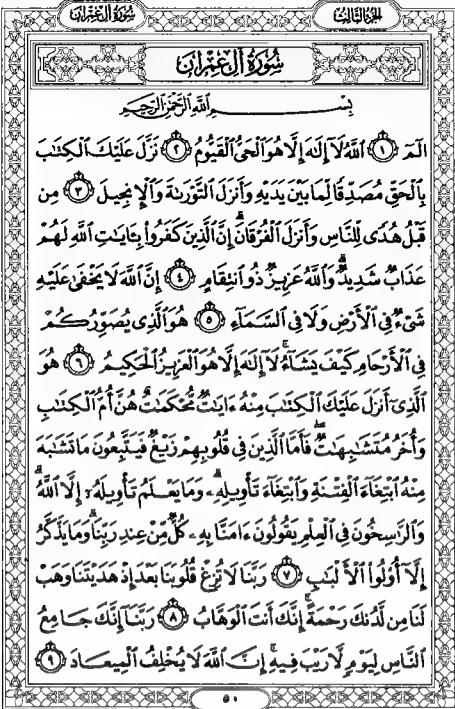 سُورَةُ آلِ عِمْرَان
الجُزْءُ الثَّالِثُ
سُورَةُ آلِ عِمْرَان
بِسْمِ ٱللَّهِ ٱلرَّحْمَٰنِ ٱلرَّحِيمِ
الٓمٓ ١ ٱللَّهُ لَآ إِلَٰهَ إِلَّا هُوَ ٱلْحَىُّ ٱلْقَيُّومُ ٢ نَزَّلَ عَلَيْكَ ٱلْكِتَٰبَ
بِٱلْحَقِّ مُصَدِّقًا لِّمَا بَيْنَ يَدَيْهِ وَأَنزَلَ ٱلتَّوْرَىٰةَ وَٱلْإِنجِيلَ ٣ مِن
قَبْلُ هُدًى لِّلنَّاسِ وَأَنزَلَ ٱلْفُرْقَانَ ۗ إِنَّ ٱلَّذِينَ كَفَرُوا۟ بِـَٔايَٰتِ ٱللَّهِ لَهُمْ
عَذَابٌ شَدِيدٌ ۗ وَٱللَّهُ عَزِيزٌ ذُو ٱنتِقَامٍ ٤ إِنَّ ٱللَّهَ لَا يَخْفَىٰ عَلَيْهِ
شَىْءٌ فِى ٱلْأَرْضِ وَلَا فِى ٱلسَّمَآءِ ٥ هُوَ ٱلَّذِى يُصَوِّرُكُمْ
فِى ٱلْأَرْحَامِ كَيْفَ يَشَآءُ ۚ لَآ إِلَٰهَ إِلَّا هُوَ ٱلْعَزِيزُ ٱلْحَكِيمُ ٦ هُوَ
ٱلَّذِىٓ أَنزَلَ عَلَيْكَ ٱلْكِتَٰبَ مِنْهُ ءَايَٰتٌ مُّحْكَمَٰتٌ هُنَّ أُمُّ ٱلْكِتَٰبِ
وَأُخَرُ مُتَشَٰبِهَٰتٌ ۖ فَأَمَّا ٱلَّذِينَ فِى قُلُوبِهِمْ زَيْغٌ فَيَتَّبِعُونَ مَا تَشَٰبَهَ
مِنْهُ ٱبْتِغَآءَ ٱلْفِتْنَةِ وَٱبْتِغَآءَ تَأْوِيلِهِۦ ۗ وَمَا يَعْلَمُ تَأْوِيلَهُۥٓ إِلَّا ٱللَّهُ ۗ
وَٱلرَّٰسِخُونَ فِى ٱلْعِلْمِ يَقُولُونَ ءَامَنَّا بِهِۦ كُلٌّ مِّنْ عِندِ رَبِّنَا ۗ وَمَا يَذَّكَّرُ
إِلَّآ أُو۟لُوا۟ ٱلْأَلْبَٰبِ ٧ رَبَّنَا لَا تُزِغْ قُلُوبَنَا بَعْدَ إِذْ هَدَيْتَنَا وَهَبْ
لَنَا مِن لَّدُنكَ رَحْمَةً ۚ إِنَّكَ أَنتَ ٱلْوَهَّابُ ٨ رَبَّنَآ إِنَّكَ جَامِعُ
ٱلنَّاسِ لِيَوْمٍ لَّا رَيْبَ فِيهِ ۚ إِنَّ ٱللَّهَ لَا يُخْلِفُ ٱلْمِيعَادَ ٩
٥٠